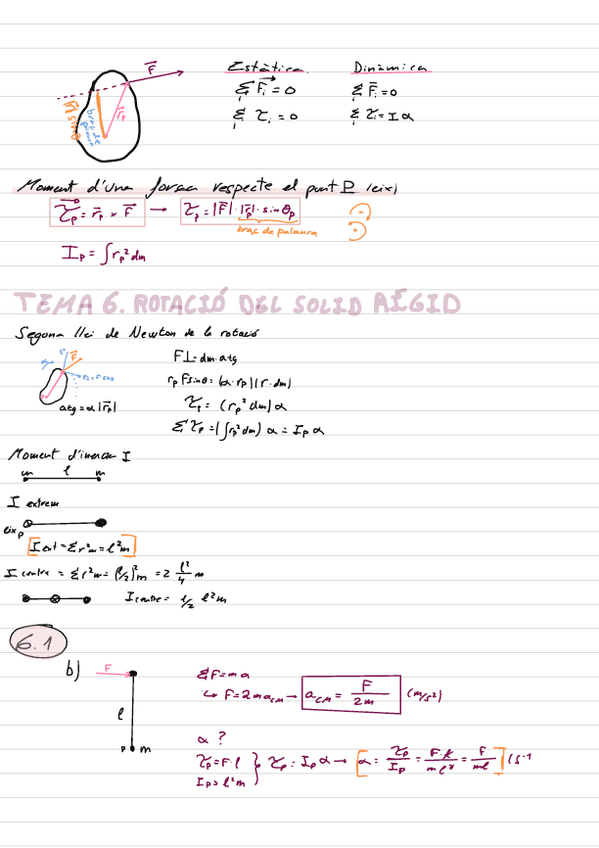 F⃗
Estàtica
Dinàmica
Σ F⃗ᵢ = 0
Σ Fᵢ = 0
Σ τᵢ = 0
Σ τᵢ = I α
|r⃗ₚ|
braç de palanca
Moment d'una força respecte el punt P (eix)
τ⃗ₚ = r⃗ₚ × F⃗ → τₚ = |F⃗| · |r⃗ₚ| · sin θₚ
braç de palanca
Iₚ = ∫ rₚ² dm
TEMA 6. ROTACIÓ DEL SOLID RÍGID
Segona llei de Newton de la rotació
F⊥ = dm · atg
rₚ F sin θ = (α · rₚ)(r · dm)
atg = α |r⃗ₚ|
τₚ = (rₚ² dm) α
Σ τₚ = (∫ rₚ² dm) α = Iₚ α
Moment d'inercia I
m l m
I extrem
eix p
[I ext = Σ r² m = l² m]
I centre = Σ r² m = (l/2)² m = 2 l²/4 m
I centre = 1/2 l² m
6.1
b) F
ΣF = ma
↳ F = 2m a_CM → a_CM = F/2m (m/s²)
l
P m
α ?
τₚ = F · l
Iₚ = l² m } τₚ = Iₚ α → [α = τₚ/Iₚ = F · l/m l² = F/ml] (s⁻¹